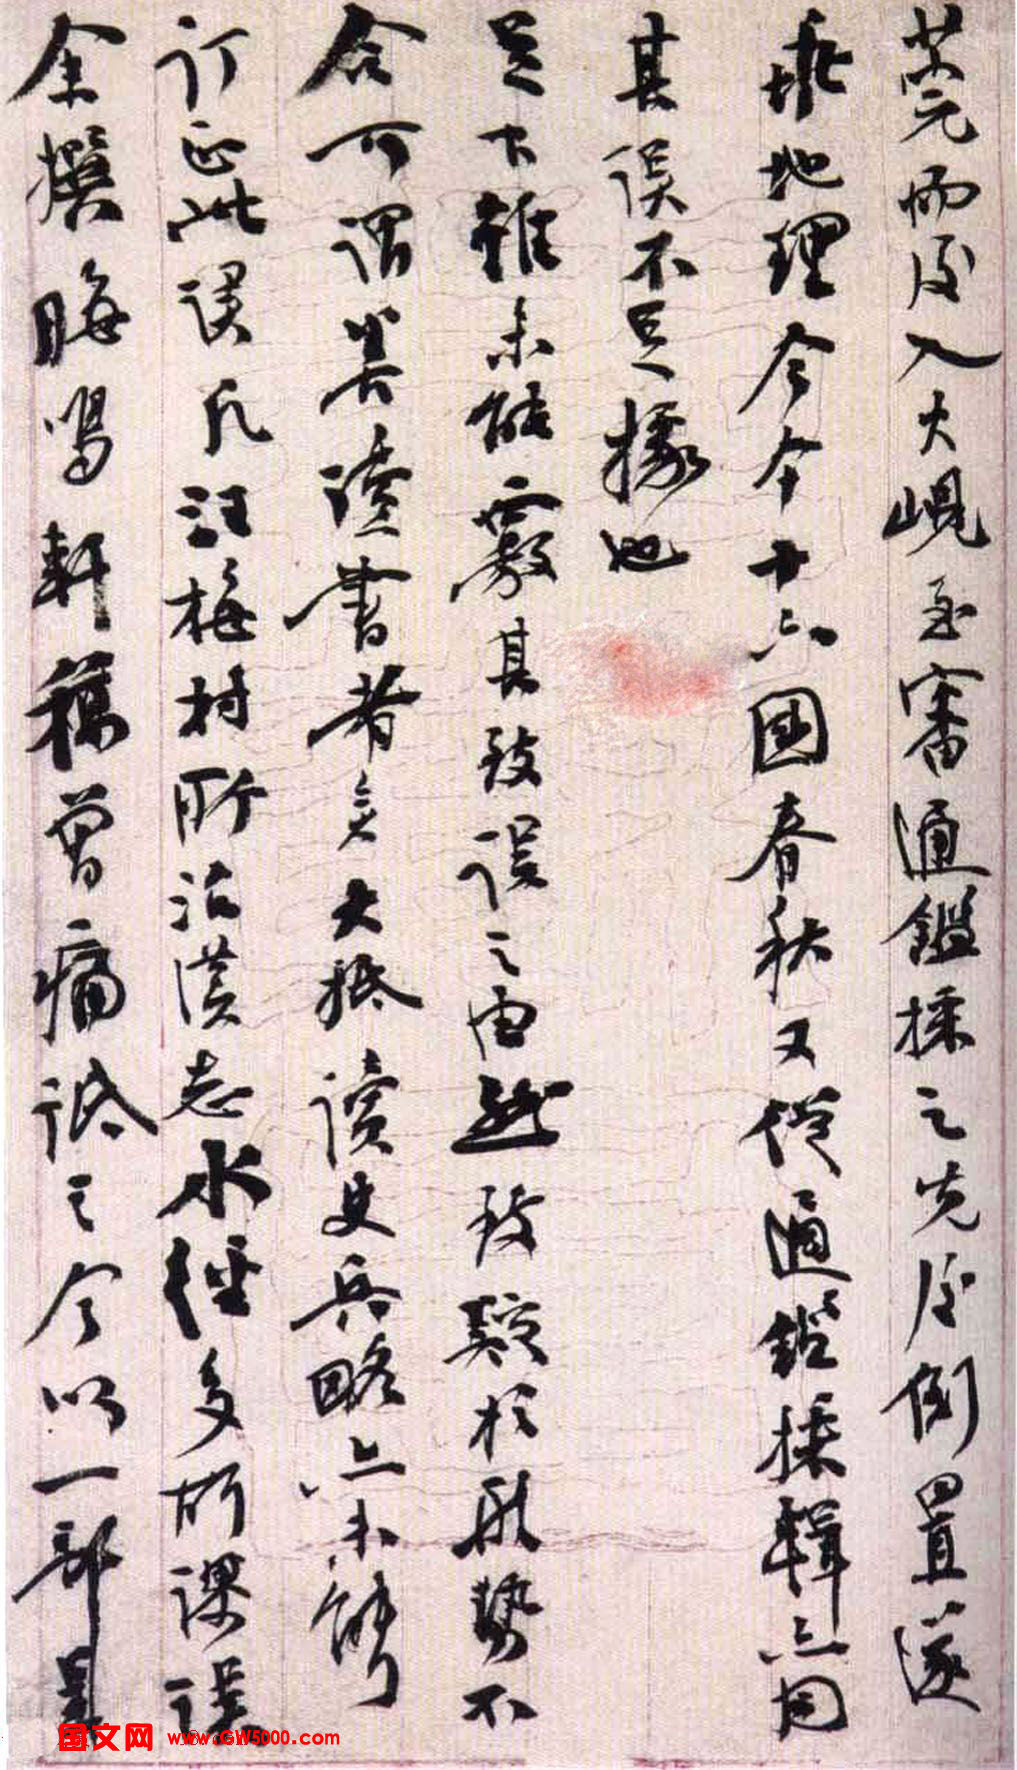 莞而後入大峴至審通鑑採之先後倒置遂
乖地理今本十六國春秋又從通鑑採輯亦同
其誤不足據也
足下雖未能覈其致誤之由然致疑於形勢不
合可謂善讀書者矣大抵讀史兵略亦未能
訂正此誤凡汪梅村所沿漢志水經多所課誤
余撰晦鳴軒稿曾痛詆之今以一部
国文网 www.GW5000.com